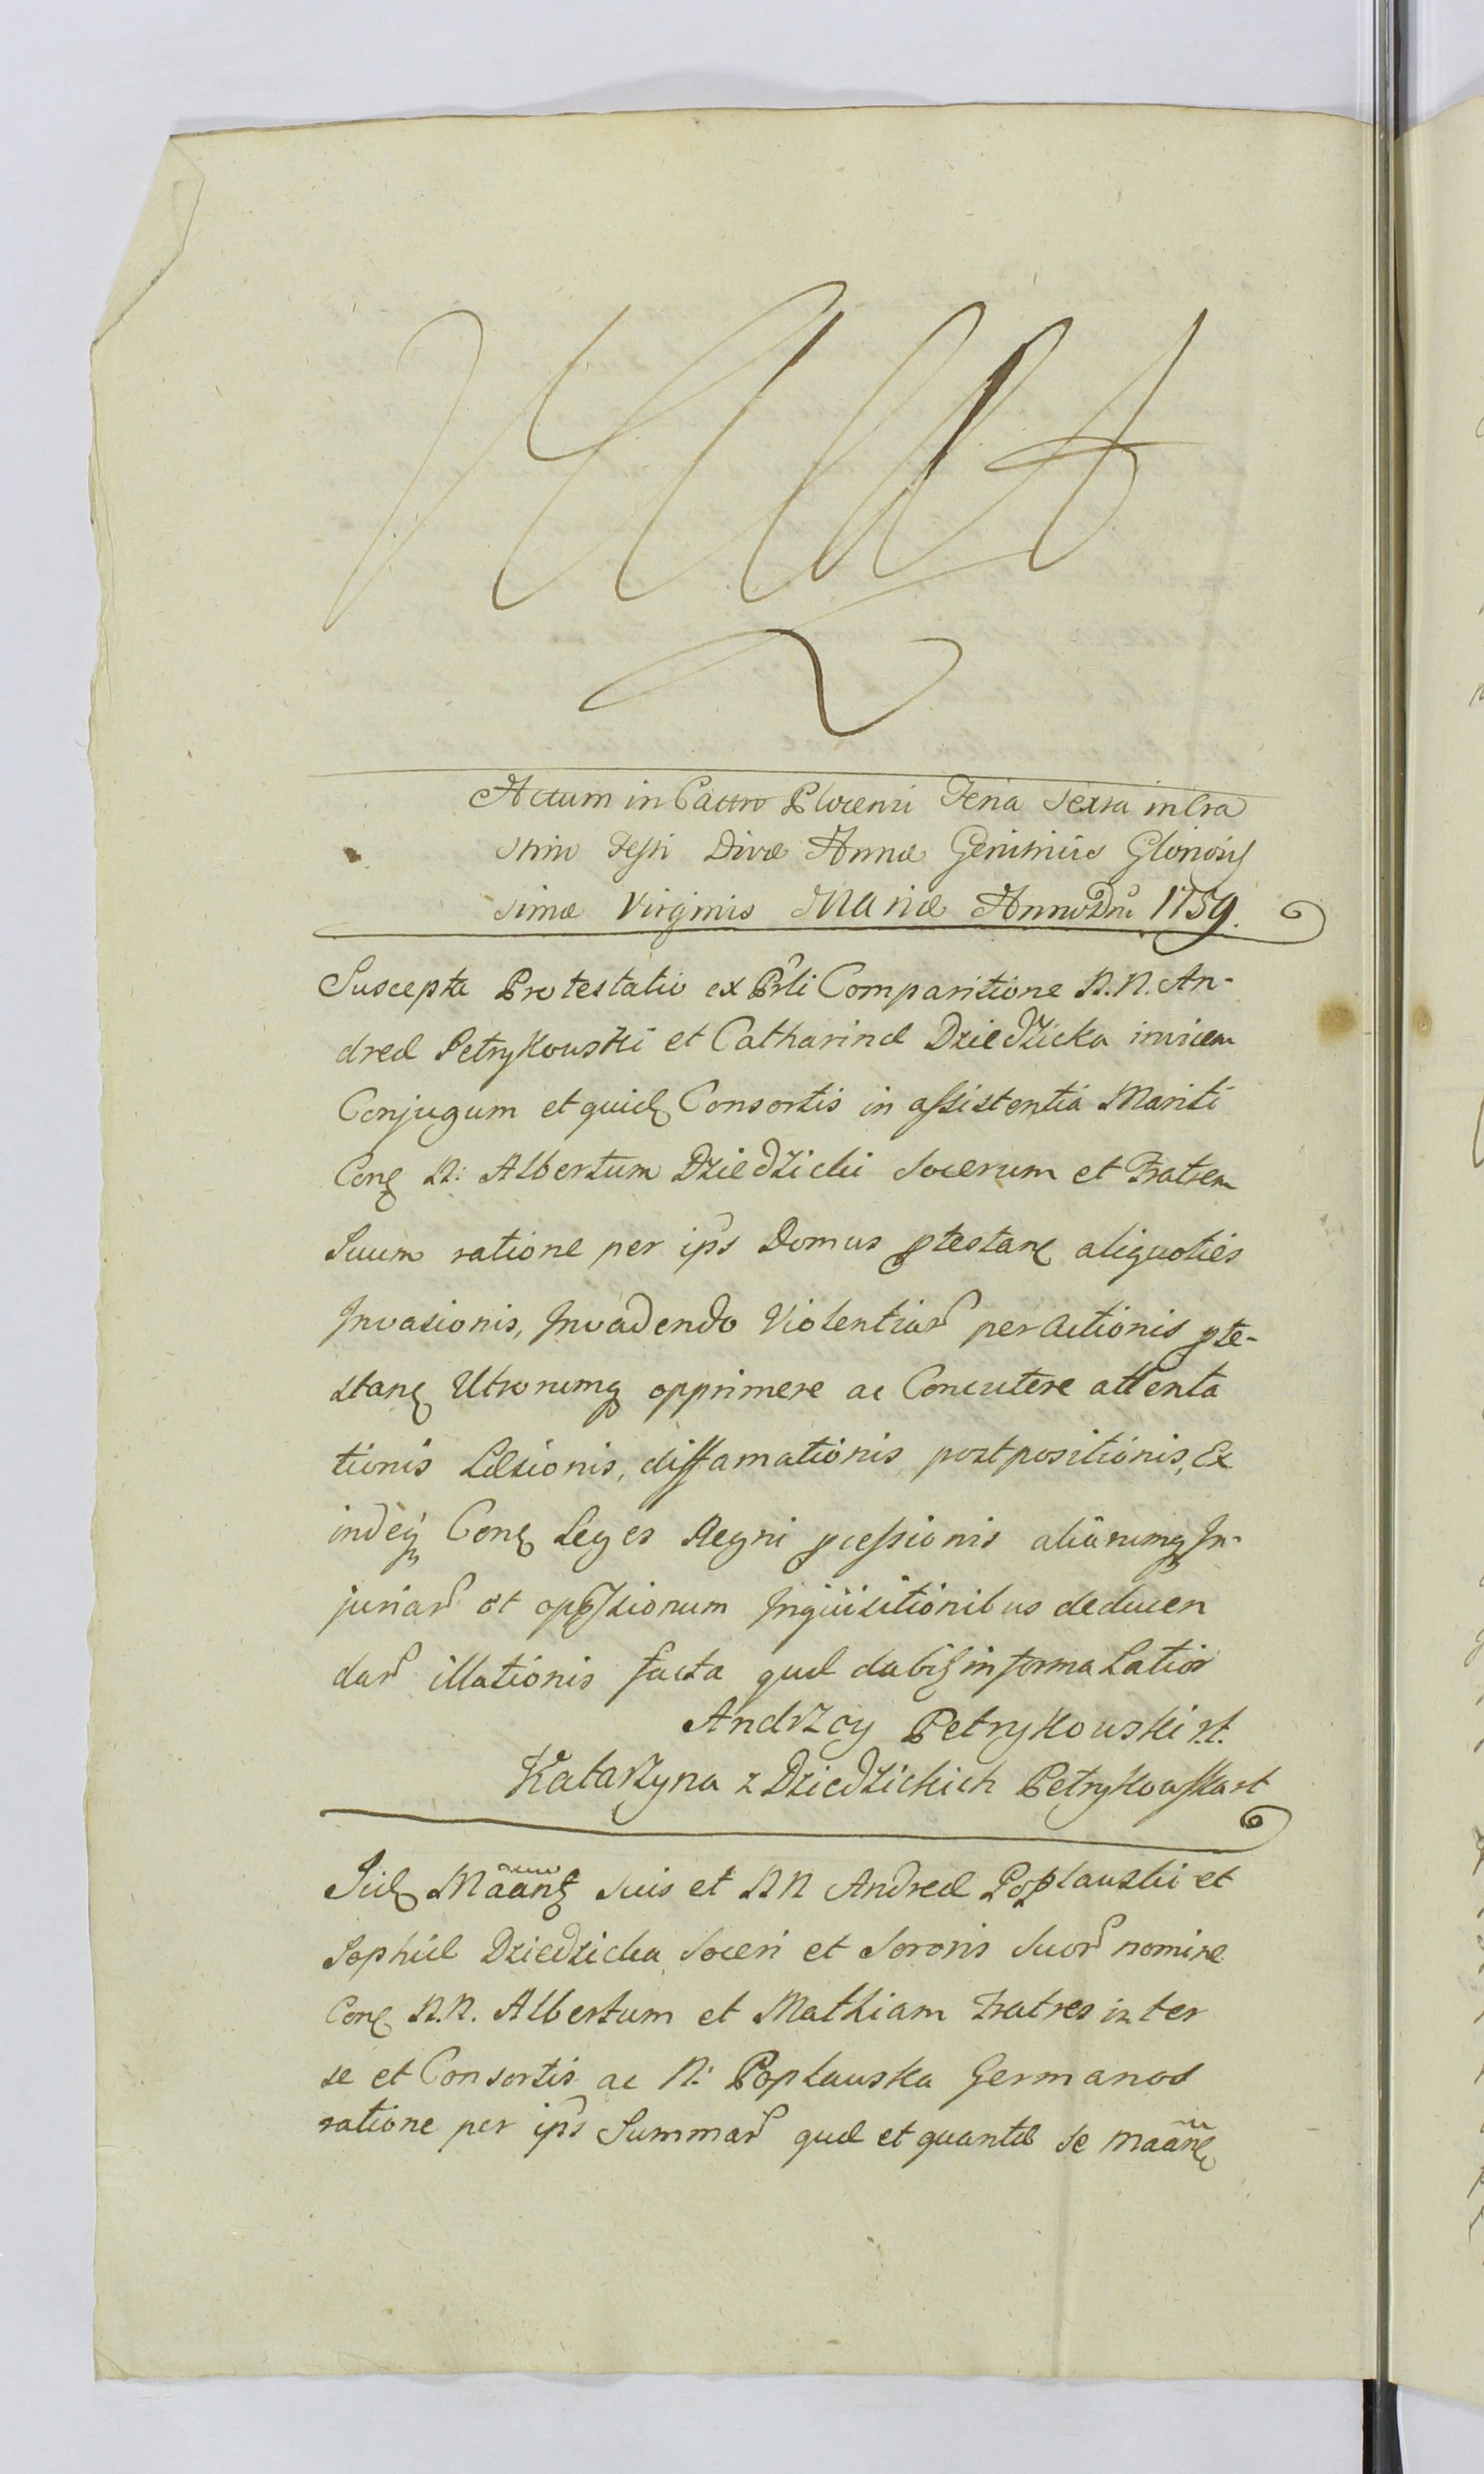 Actum in Castro Plocensi Feria Sexta in Cra
stino Festi Divæ Annæ Genitricis Gloriosis
simæ Virginis Mariæ Anno Dni 1759.
Suscepta Protestatio ex Prli Comparitione N. N. An-
dreæ Petrykowski et Catharinæ Dziedzicka invicem
Conjugum et quid Consortis in assistentia Mariti
Con N: Albertum Dziedzicki Socerum et Fratrem
Suum ratione per ips Domus ptestan aliquoties
Invasionis, Invadendo Violentiar peractionis pte-
stan Utrorumq opprimere ac Concutere attenta
tionis Læsionis, diffamationis postpositionis, Ex
indeq Con Leges Regni pcessionis aliarumq In-
juriar et oppssionum Inquisitionibus deducen
dar illationis facta quæ dabit in forma Latior
Andrzey Petrykowski
Katarzyna z Dziedzickich Petrykowska
Iid suis et NN Andreæ Poplauski et
Sophiæ Dziedzicka Soceri et Sororis Suor nomine
Con N.N. Albertum et Mathiam Fratres inter
se et Consortis ac N: Poplauska Germanos
ratione per ips Summar quæ et quantæ se